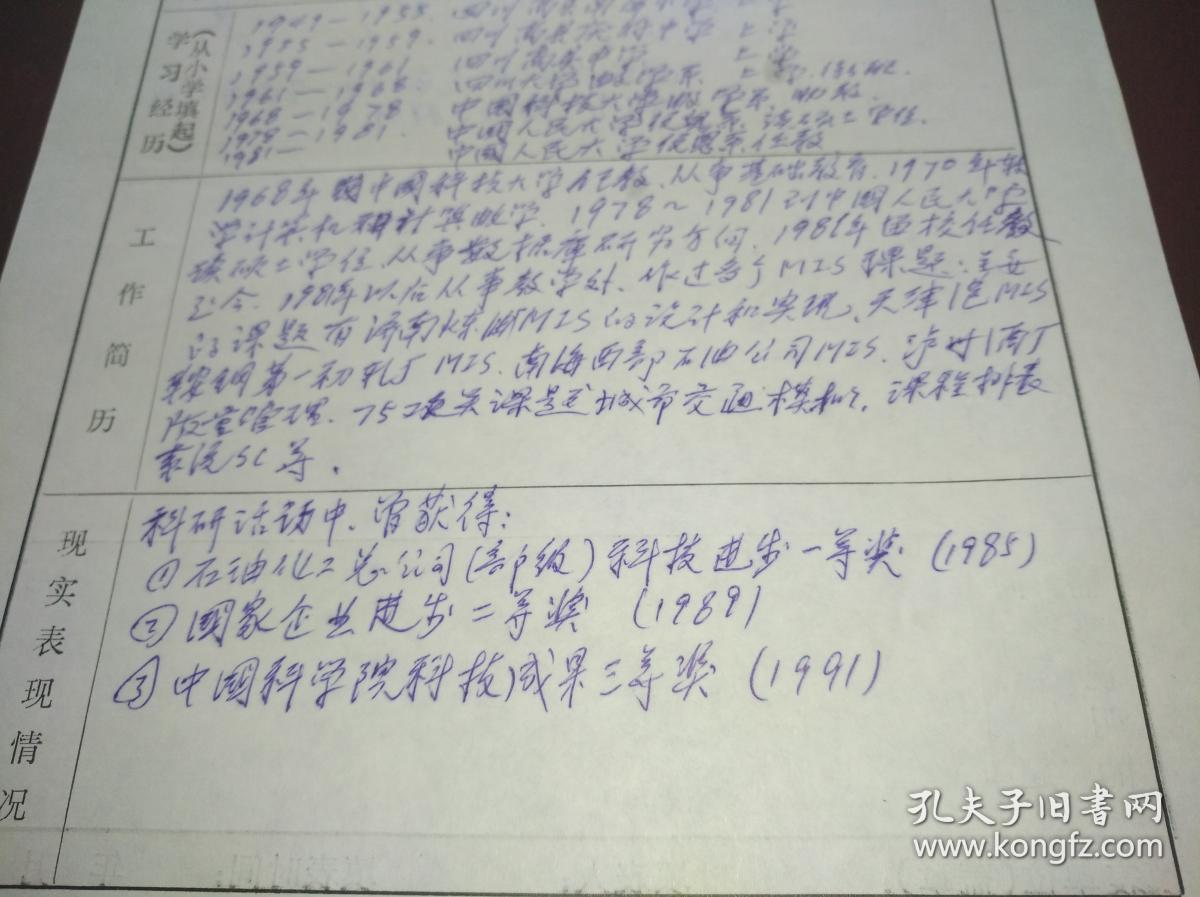 学习经历
(从小学填起)
1949—1955. 四川 小学 上学
1955—1959. 四川 中学 上学
1959—1961 四川 中学 上学
1961—1968 四川大学数学系 上学
1968—1978 中国科技大学数学系 助教.
1978—1981. 中国人民大学 系 硕士学位.
1981— 中国人民大学 系任教
工作简历
1968年 中国科技大学任教、从事基础教育. 1970年转
学计算机和计算数学. 1978～1981到中国人民大学
读硕士学位、从事数据库研究方向. 1981年回校任教
至今. 1981年以后从事教学外、作过多个MIS课题:主要
的课题有济南炼油厂MIS的设计和实现、天津 MIS
鞍钢第一初轧厂MIS、南海西部石油公司MIS、泸州
质量管理、75攻关课题 城市交通模拟、课程排表
系统SC等.
现实表现情况
科研活动中、曾获得:
①石油化工总公司(部级)科技进步一等奖 (1985)
②国家企业进步二等奖 (1989)
③中国科学院科技成果三等奖 (1991)
孔夫子旧书网
www.kongfz.com